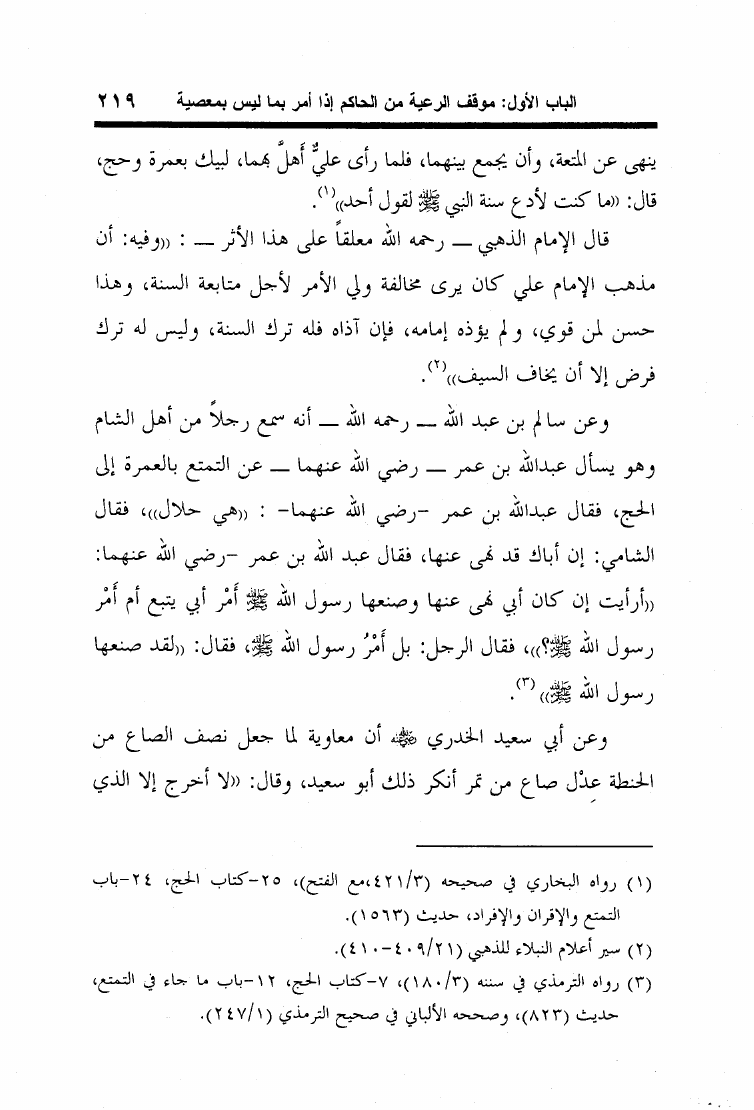 الباب الأول: موقف الرعية من الحاكم إذا أمر بما ليس بمعصية ٢١٩
ينهى عن المتعة، وأن يجمع بينهما، فلما رأى عليٌّ أَهلَّ بهما، لبيك بعمرة وحج،
قال: ((ما كنت لأدع سنة النبي ﷺ لقول أحد))(١).
قال الإمام الذهبي ــ رحمه الله معلقاً على هذا الأثر ــ : ((وفيه: أن
مذهب الإمام علي كان يرى مخالفة ولي الأمر لأجل متابعة السنة، وهذا
حسن لمن قوي، ولم يؤذه إمامه، فإن آذاه فله ترك السنة، وليس له ترك
فرض إلا أن يخاف السيف))(٢).
وعن سالم بن عبد الله ــ رحمه الله ــ أنه سمع رجلاً من أهل الشام
وهو يسأل عبدالله بن عمر ــ رضي الله عنهما ــ عن التمتع بالعمرة إلى
الحج، فقال عبدالله بن عمر -رضي الله عنهما- : ((هي حلال))، فقال
الشامي: إن أباك قد نهى عنها، فقال عبد الله بن عمر -رضي الله عنهما:
((أرأيت إن كان أبي نهى عنها وصنعها رسول الله ﷺ أَمْر أبي يتبع أم أَمْر
رسول الله ﷺ؟))، فقال الرجل: بل أَمْرُ رسول الله ﷺ، فقال: ((لقد صنعها
رسول الله ﷺ))(٣).
وعن أبي سعيد الخدري رضي الله عنه أن معاوية لما جعل نصف الصاع من
الحنطة عِدْل صاع من تمر أنكر ذلك أبو سعيد، وقال: ((لا أخرج إلا الذي
(١) رواه البخاري في صحيحه (٤٢١/٣،مع الفتح)، ٢٥-كتاب الحج، ٢٤-باب
التمتع والإقران والإفراد، حديث (١٥٦٣).
(٢) سير أعلام النبلاء للذهبي (٤٠٩/٢١-٤١٠).
(٣) رواه الترمذي في سننه (١٨٠/٣)، ٧-كتاب الحج، ١٢-باب ما جاء في التمتع،
حديث (٨٢٣)، وصححه الألباني في صحيح الترمذي (٢٤٧/١).